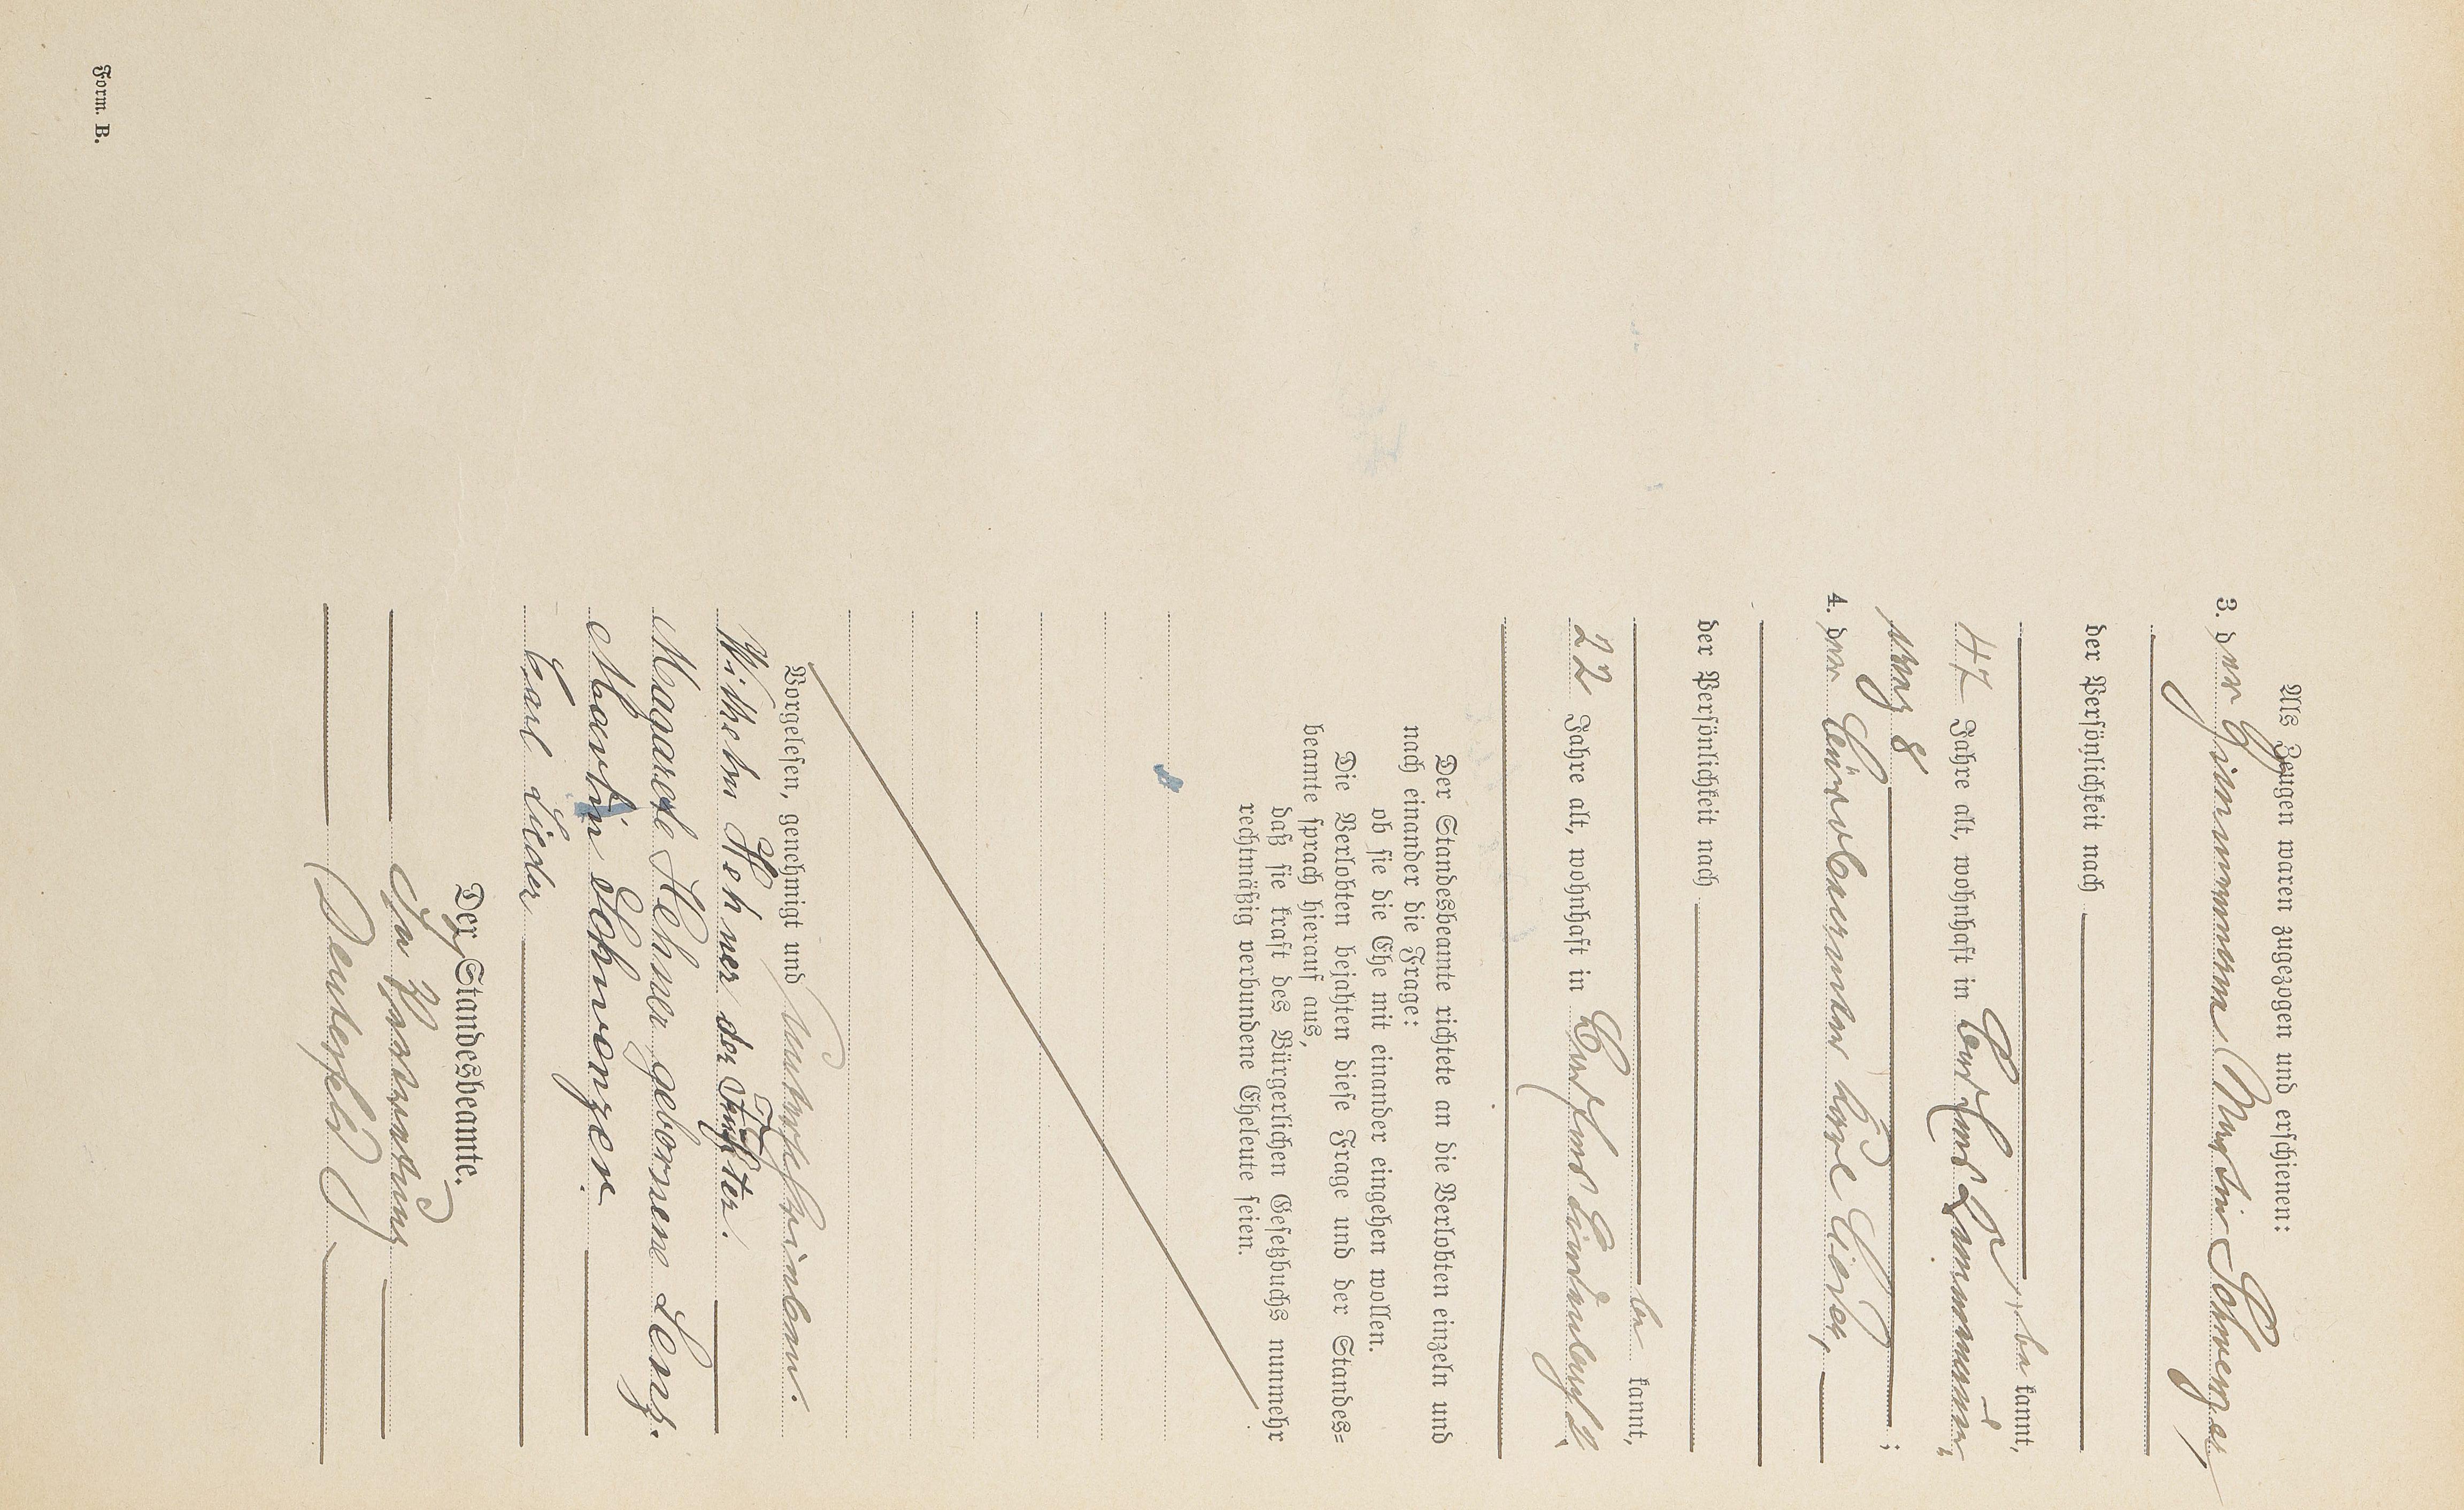 Als Zeugen waren zugezogen und erschienen:
3. der Zimmermann Martin Schwenzer,
der Persönlichkeit nach
be kannt,
47 Jahre alt, wohnhaft in
weg 8;
4. der Carl Lieder,
der Persönlichkeit nach
be kannt,
22 Jahre alt, wohnhaft in
Der Standesbeamte richtete an die Verlobten einzeln und
nach einander die Frage:
ob sie die Ehe mit einander eingehen wollen.
Die Verlobten bejahten diese Frage und der Standes=
beamte sprach hierauf aus,
daß sie kraft des Bürgerlichen Gesetzbuchs nunmehr
rechtmäßig verbundene Eheleute seien.
Vorgelesen, genehmigt und unterschrieben.
Wilhelm Hehner der
Magarete Hehner geborene Lenz.
Martin Schwenzer.
Carl Lieder
Der Standesbeamte.
In Vertretung
Form. B.